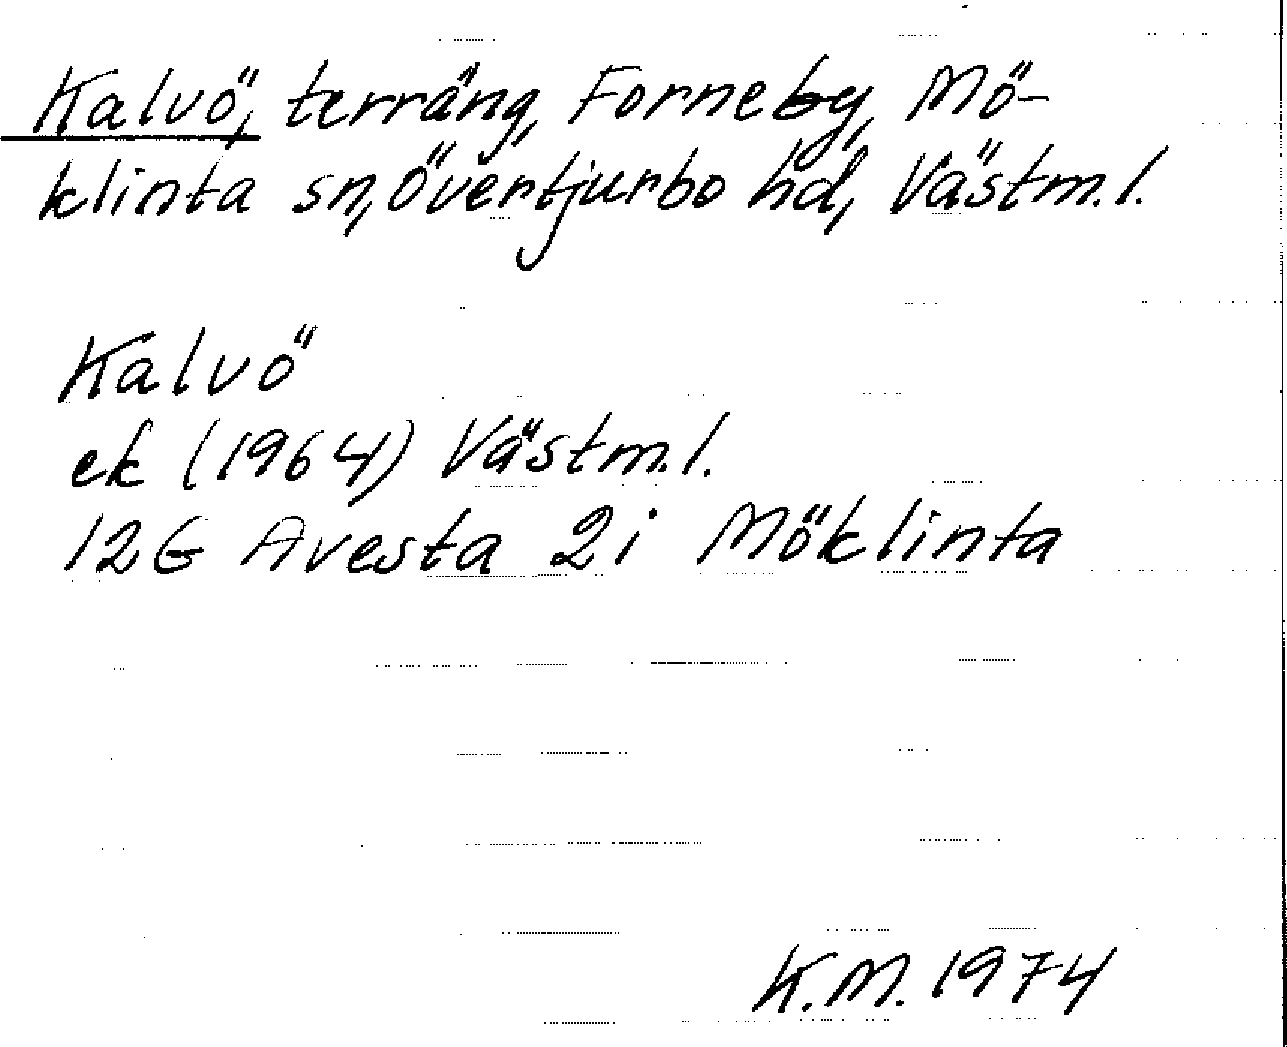 Kalvö, terräng, Forneby, Mö-
klinta sn, Övertjurbo hd, Västm.l.
Kalvö
ek (1964) Västm.l.
12G Avesta 2i Möklinta
K.M. 1974